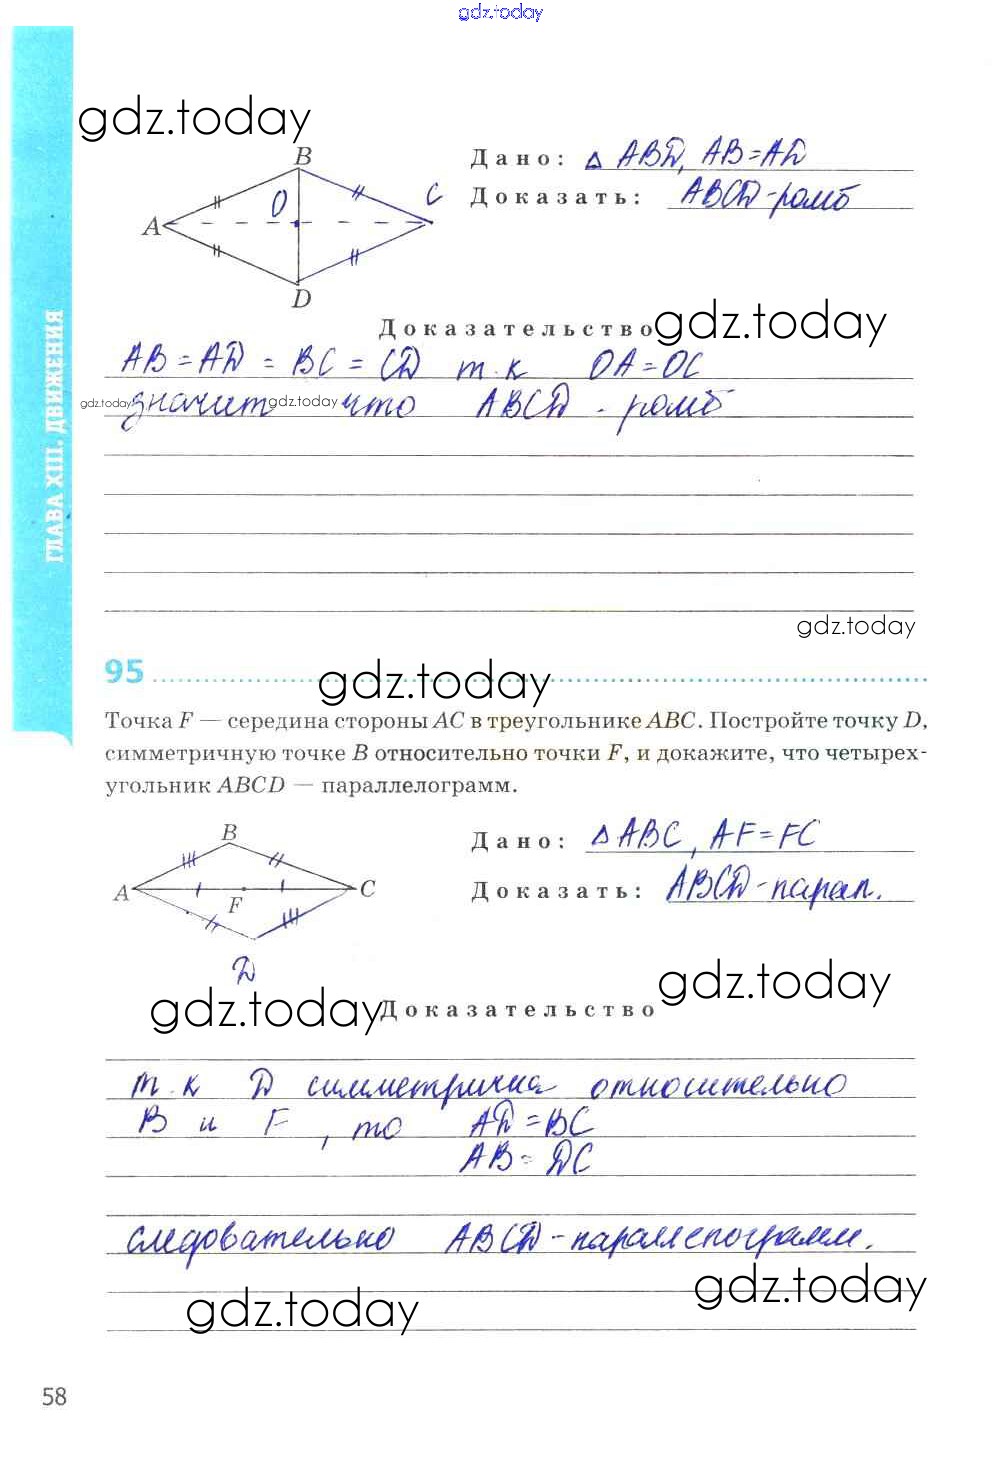 gdz.today
gdz.today
B
O
C
A
D
Дано: △ ABD, AB=AD
Доказать: ABCD-ромб
Доказательство
gdz.today
AB = AD = BC = CD т.к OA=OC
gdz.today значит gdz.today что ABCD - ромб
ГЛАВА XIII. ДВИЖЕНИЯ
gdz.today
95
gdz.today
Точка F — середина стороны AC в треугольнике ABC. Постройте точку D,
симметричную точке B относительно точки F, и докажите, что четырех-
угольник ABCD — параллелограмм.
B
A
F
C
D
Дано: △ABC, AF=FC
Доказать: ABCD-парал.
gdz.today
gdz.today
Доказательство
т.к D симметрична относительно
B и F, то AD=BC
AB=DC
следовательно ABCD-параллелограмм.
gdz.today
gdz.today
58